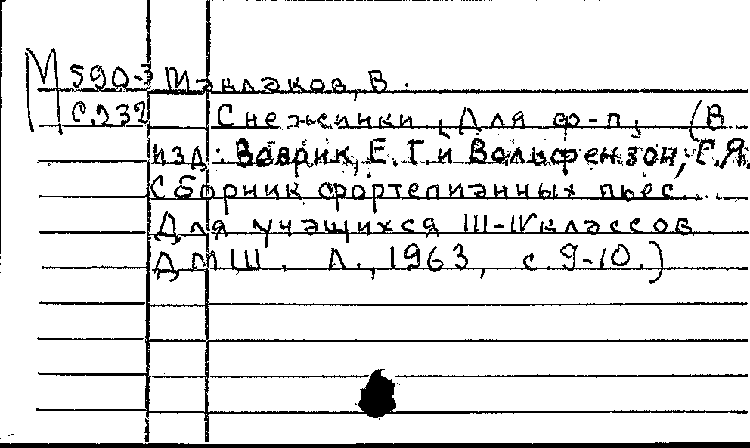 М 590-3 Маклаков, В.
С.232 Снежинки, Для ф-п, (В
изд: Ваврик, Е. Г. и Вольфензон, С.Я.
Сборник фортепианных пьес.
Для учащихся III-IV классов
ДМШ. Л., 1963, с. 9-10.)